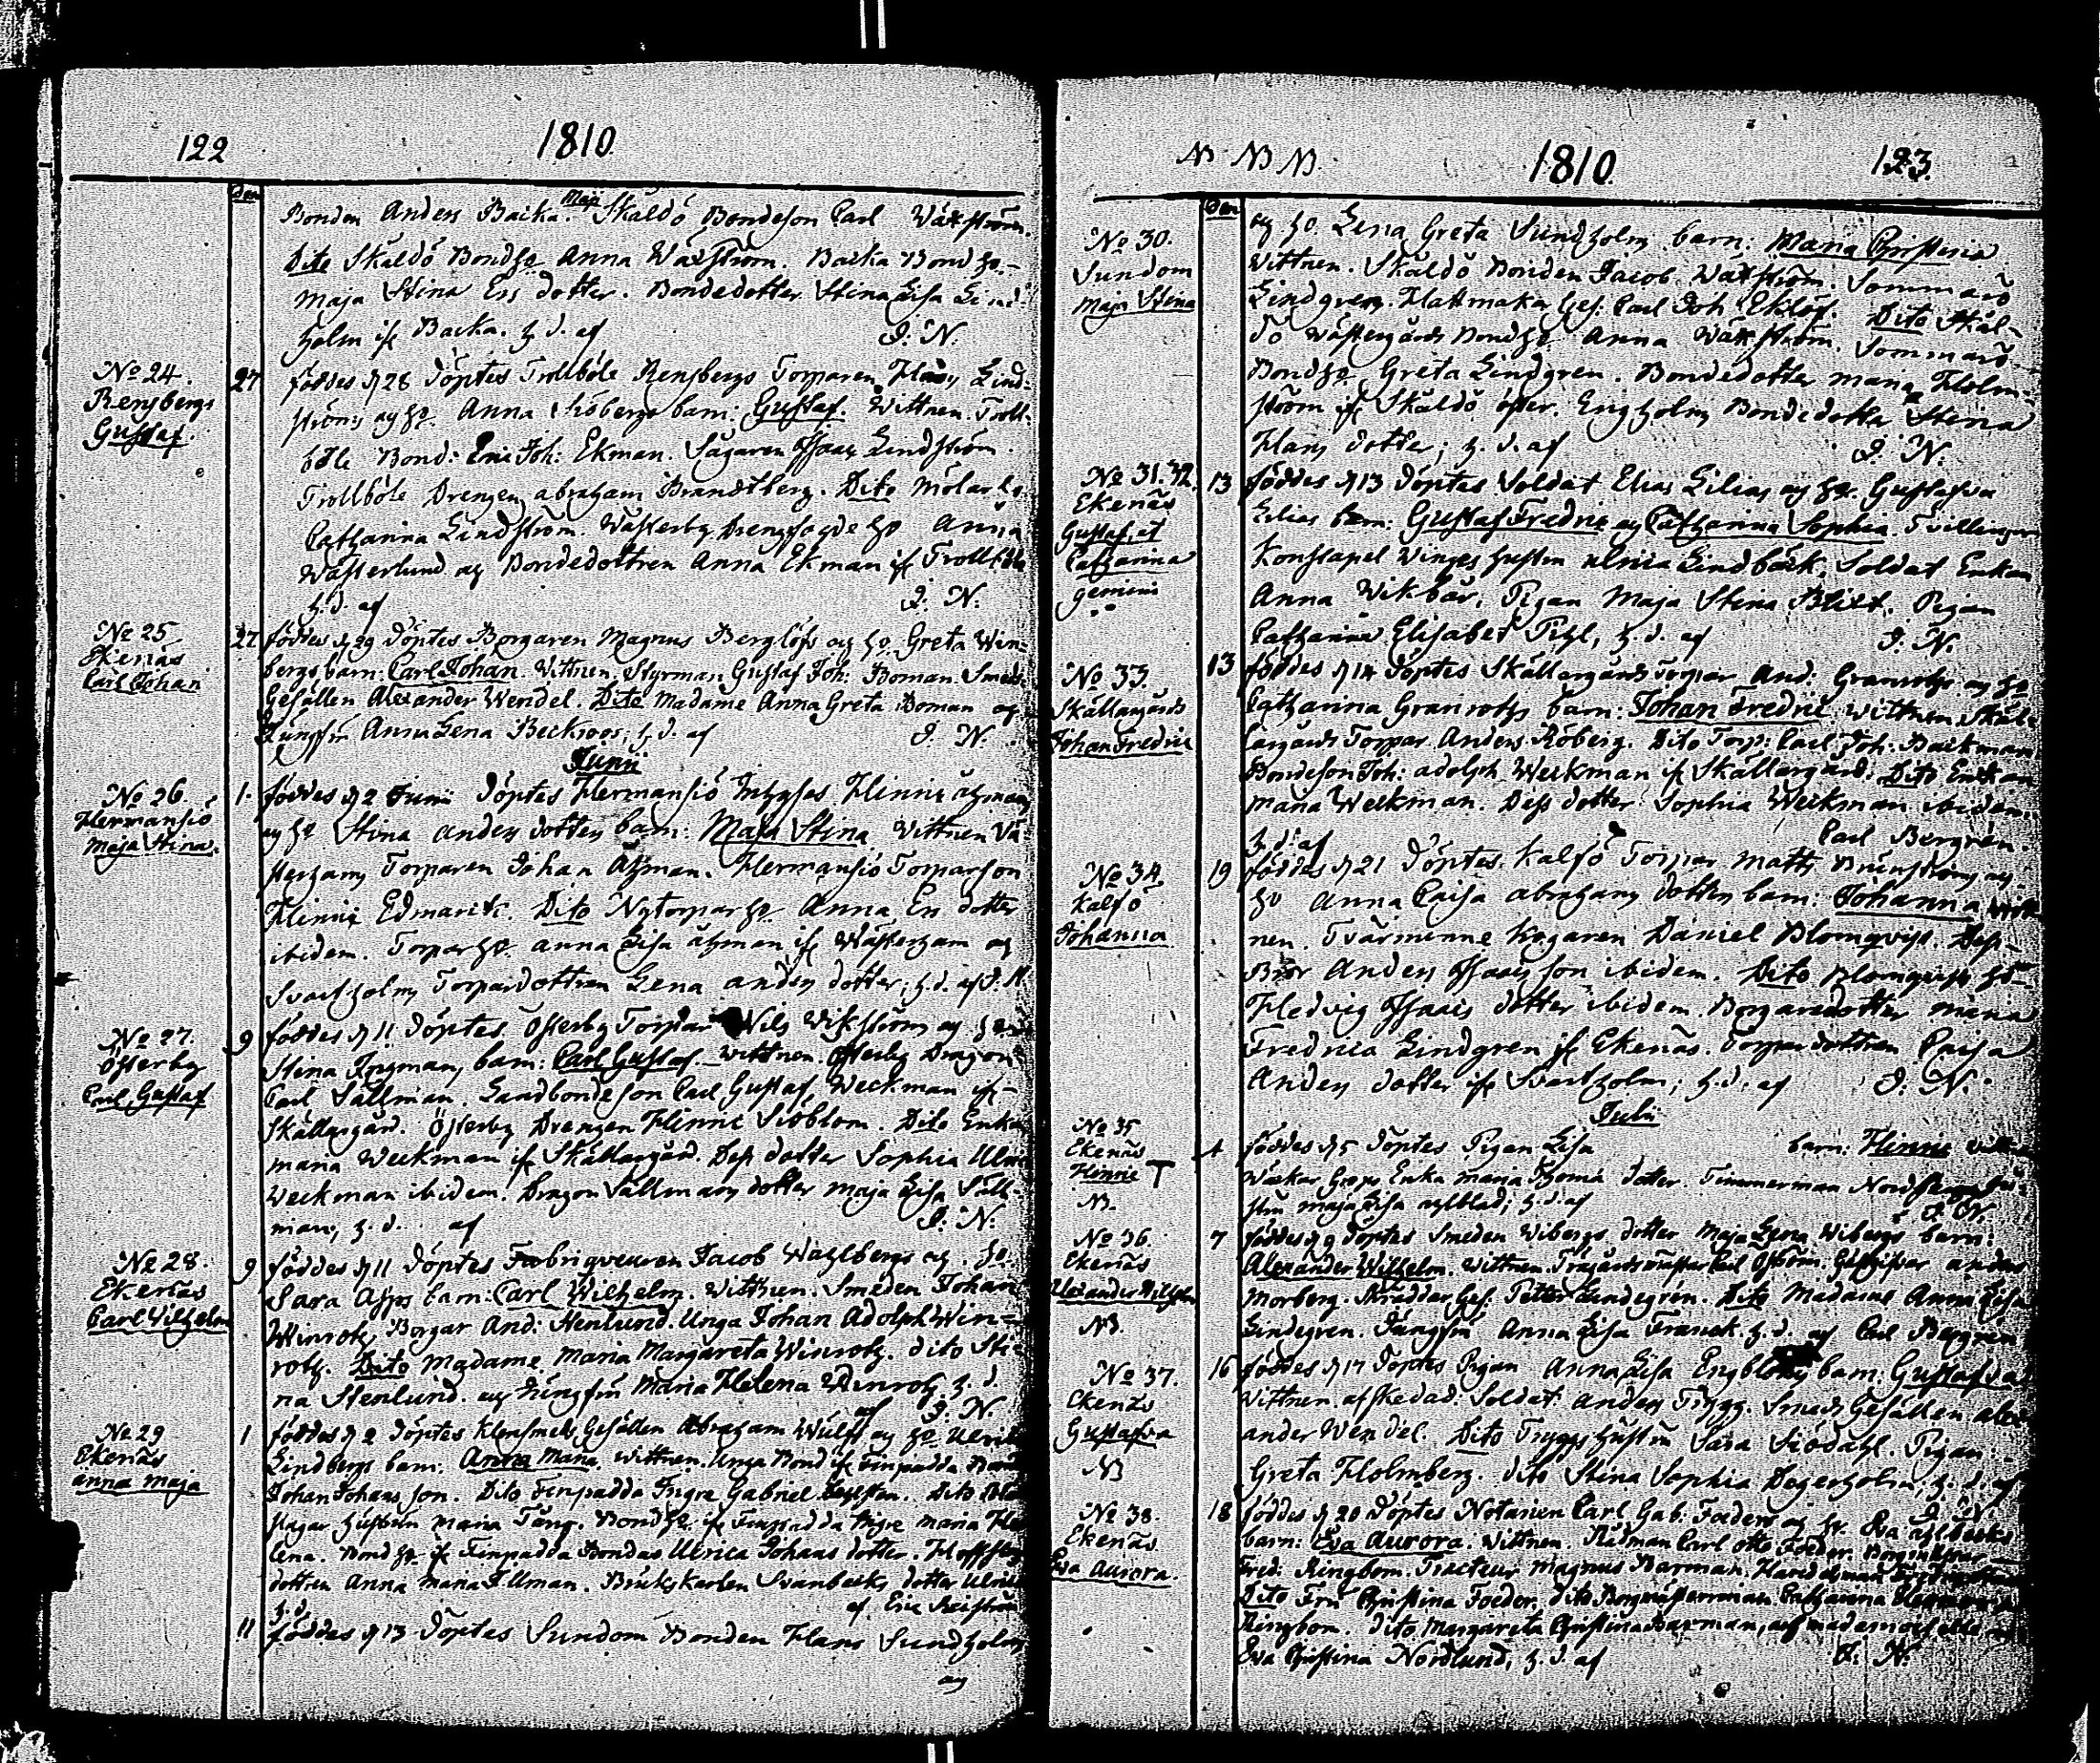 122
1810
Den
Maji
Bonden Anders Backa. Skåldö Bondeson Carl Wäxström.
Dito Skåldö Bondho Anna Wäxström. Backa Bondho
Maja Stina Ers dotter. Bondedotter Stina Lisa Lind-
holm if Backa. h. d. af J. N.
No 24.
Rensbergs
Gustaf.
27 föddes d 28 döptes Trollböle Rensbergs Torparen Hans Lind-
ströms och ho Anna Sjöbergs barn: Gustaf. Wittnen Troll-
böle Bond: Eric Joh: Ekman. Sågaren Isaac Lindström.
Trollböle Drengen Abraham Brandtberg. Dito Mölar ho
Catharina Lindström. Wästerby Drengfogde ho Anna
Wästerlund och Bondedottren Anna Ekman if Trollböle
h. d. af J. N.
No 25
Ekenäs
Carl Johan
27 föddes d 29 döptes Borgaren Magnus Berglöfs och ho Greta Win-
bergs barn: Carl Johan. Wittnen. Styrman Gustaf Joh: Boman. Smeds
Gesällen Alexander Wendel. Dito Madame Anna Greta Boman och
Jungfru Anna Lena Beckroos, h. d. af J. N.
Junii
No 26
Hermansö
Maja Stina.
1. föddes d 2 Junii döptes Hermansö Inhyses Hinric Åhmans
och ho Stina Anders dotters barn: Maja Stina. Wittnen Vä-
sterhams Torparen Johan Åhman. Hermansö Torparson
Hinric Edmark. Dito Nytorpar ho Anna Ers dotter
ibidem. Torparho Anna Lisa Åhman if Wästerham och
Svartholms Torpardottren Lena Anders dotter, h. d. af J. N.
No 27.
Österby
Carl Gustaf
9 föddes d 11 döptes Österby Torpar Nils Wikströms och ho
Stina Ingmans barn: Carl Gustaf. Wittnen. Österby Dragon
Carl Sällman. Landbondeson Carl Gustaf Weckman if
Skällargård. Österby Drengen Hinric Siöblom. Dito Enkan
Maria Weckman if Skällargård. Dess dotter Sophia Ulrica
Weckman ibidem. Dragon Sällmans dotter Maja Lisa Säll-
man, h. d. af J. N.
No 28.
Ekenäs
Carl Wilhelm
9 föddes d 11 döptes Fabriqueuren Jacob Wahlbergs och ho
Sara Alfps barn: Carl Wilhelm. Wittnen. Smeden Johan
Winroth, Borgar And: Stenlund. Unga Johan Adolph Win-
roth. Dito Madame Maria Margareta Winroth. dito Sti-
na Stenlund. och Jungfru Maria Helena Winroth. h. d.
af J. N.
No 29
Ekenäs
Anna Maja
1 föddes d 2 döptes Klensmeds Gesällen Abraham Wulff och ho Ulrica
Lindbergs barn: Anna Maria. Wittnen. Unga Bond if Finpadda
Johan Johans son. Dito Finpadda Ingre Gabriel. Dito
slagar Hustrun Maria Tång. Bondho if Finpadda Ingre Maria He-
lena. Bondho if Finpadda Bondas Ulrica Johans dotter.
dottren Anna Maria Illman. Brukskarlen Svanbecks dotter Ulrica
h. d. af Eric
11 föddes d 13 döptes Sundom Bonden Hans Sundholms
och
NB NB NB.
1810.
123.
Den
No 30.
Sundom
Maja Stina
och ho Lena Greta Sundholms barn: Maria Christina
Wittnen. Skåldö Bonden Jacob Wäxström. Sommarö
Lindgren. Hattmakar Ges. Carl Joh: Eklöf. Dito Skål-
dö Wästergårds Bondho Anna Wäxström. Sommarö
Bondho Greta Lindgren. Bondedotter Maria Holm-
ström if Skåldö öster. Engholms Bondedotter Stina
Hans dotter; h. d. af J. N.
No 31. 32.
Ekenäs
Gustaf, et
Catharina
gemini
13 föddes d 13 döptes Soldat Elias Lilias och ho Gustafva
Lilias barn: Gustaf Fredric och Catharina Sophia. Tvillingar
Konstapel Winges hustru Ulrica Lindbäck. Soldat Enkan
Anna Wikbär. Pigan Maja Stina Blixt. Pigan
Catharina Elisabet Pihl, h. d. af J. N.
No 33.
Skällargårds
Johan Fredric
13 föddes d 14 döptes Skällargårds Torpar And: Granroths och ho
Catharina Granroths barn: Johan Fredric. Wittnen Skäl-
largårds Torpar Anders Röberg. Dito Torp: Carl Joh: Backman
Bondeson Joh: Adolph Weckman if Skällargård. Dito Enkan
Maria Weckman. Dess dotter Sophia Weckman ibidem.
h. d. af Carl Bergrén.
No 34.
Kalfö
Johanna
19 föddes d 21 döptes. Kalfö Torpar Matts Brunströms och
ho Anna Caisa Abrahams dotters barn: Johanna Witt-
nen. Tvärminne Kogaren Daniel Blomqvist. Dess
Bror Anders Isaacs son ibidem. Dito Blomqvists ho
Hedvig Isaacs dotter ibidem. Borgaredotter Maria
Fredrica Lindgren if Ekenäs. Torpardottren Caisa
Anders dotter if Svartholm; h. d. af J. N.
Julii
No 35
Ekenäs
Hinric T
NB.
4 föddes d 5 döptes Pigan Lisa barn: Hinric
Enka Maria Thomæ dotter. Timmerman
Maja Lisa h. d. af J. N.
No 36.
Ekenäs
Alexander Wilhelm
NB.
7 föddes d 9 döptes Smeden Wibergs dotter Maja Lena Wibergs barn:
Alexander Wilhelm. Wittnen. Trägårdsmästar Carl Öström. Gästgifvar Anders
Morberg. Skräddar Ges: Petter Lindegrén. Dito Madame Anna Lisa
Lindegren. Jungfru Anna Lisa Franck. h. d. af Carl Bergren
No 37.
Ekenäs
Gustafva
NB
16 föddes d 17 döptes Pigan Anna Lisa Engbloms barn: Gustafva
Wittnen. afskedad Soldat Anders Trygg. Smeds Gesällen Alex-
ander Wendel. Dito Tryggs hustru Sara Siödahl. Pigan
Greta Holmberg. dito Stina Sophia Degerholm, h. d. af
J. N.
No 38.
Ekenäs
Eva Aurora.
18 föddes d 20 döptes Notarien Carl Gab: Foeders och ho Eva Ahlbecks
barn: Eva Aurora. Wittnen. Rådman Carl Otto Foeder. Borgmästar
Fred: Ringbom. Tracteur Magnus Barman.
Dito Fru Christina Foeder. dito Borgmästarinnan Catharina
Ringbom. dito Margareta Christina Barman, och mademoiselle
Eva Christina Nordlund, h. d. af J. N.